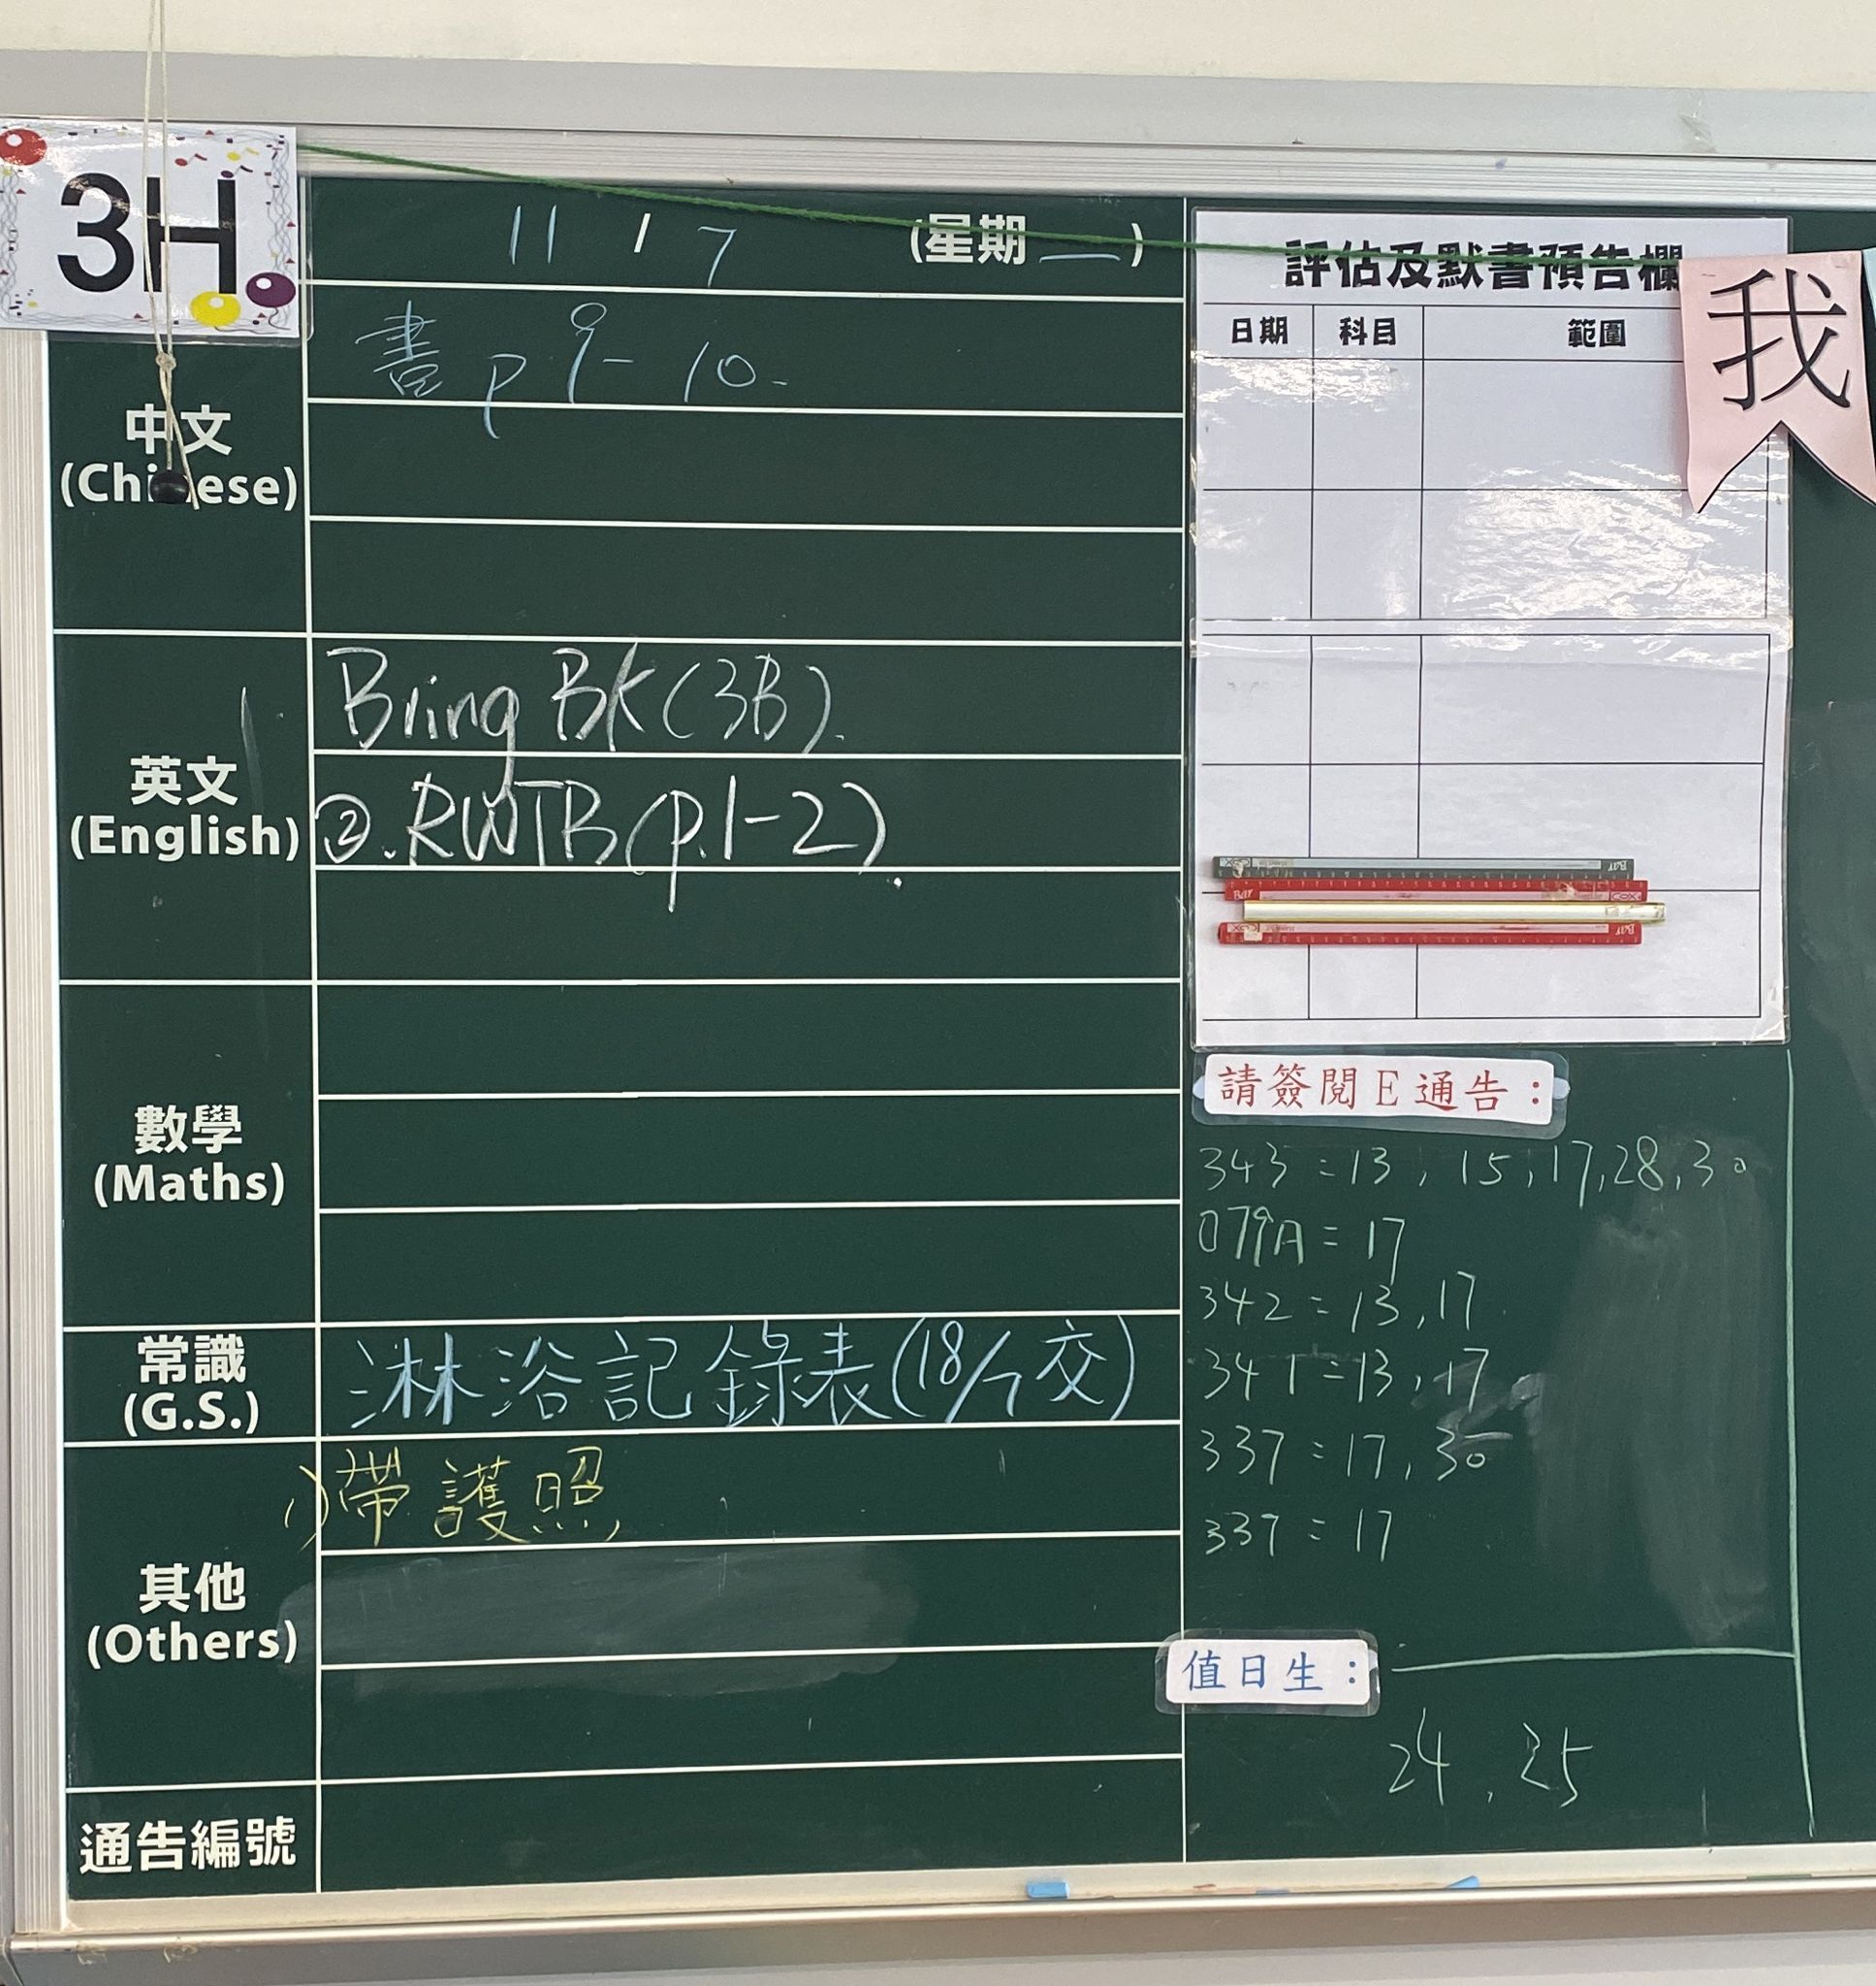 3H
11 / 7 (星期一)
中文
(Chinese)
書 p 9 - 10.
英文
(English)
Bring BK (3B).
②. RWTB (p.1-2).
數學
(Maths)
常識
(G.S.)
淋浴記錄表(18/7交)
其他
(Others)
1) 帶護照
通告編號
評估及默書預告欄
日期 科目 範圍
我
請簽閱E通告:
343 = 13, 15, 17, 28, 30
079A = 17
342 = 13, 17
341 = 13, 17
337 = 17, 30
337 = 17
值日生:
24, 25